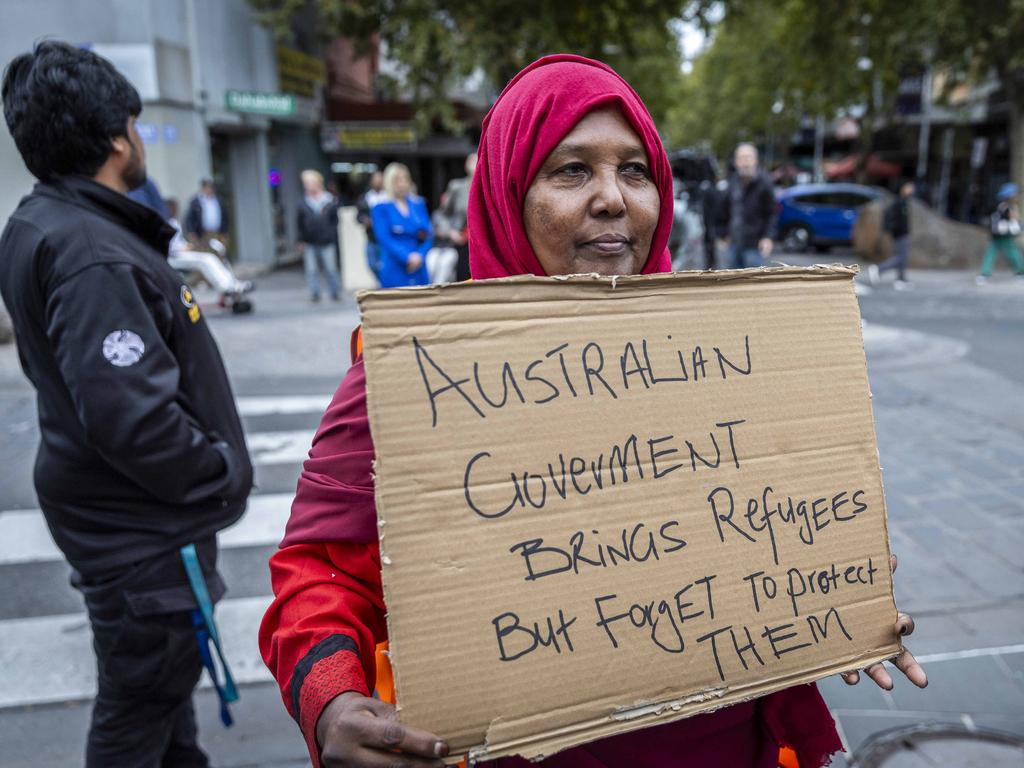 AUSTRALIAN
GOVERMENT
BRINGS REFUGEES
BUT FORGET TO PROTECT
THEM